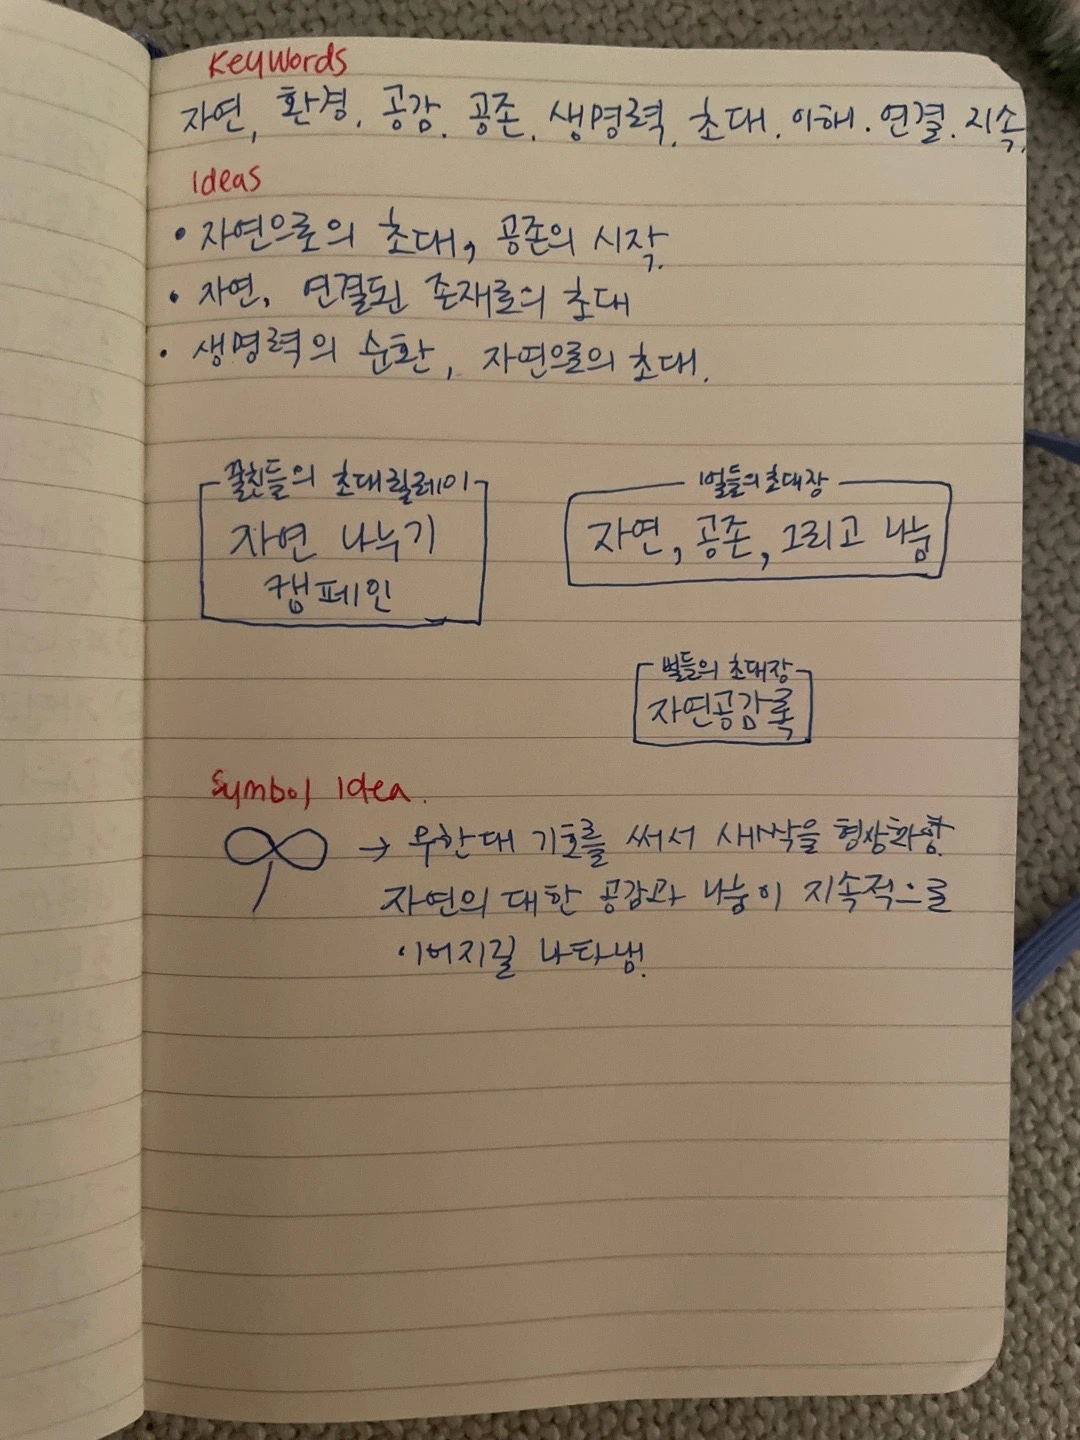 KeyWords
자연, 환경, 공감, 공존, 생명력, 초대, 이해, 연결, 지속,
Ideas
• 자연으로의 초대, 공존의 시작.
• 자연, 연결된 존재로의 초대
• 생명력의 순환, 자연으로의 초대.
꿀친들의 초대릴레이
자연 나누기
캠페인
벌들의 초대장
자연, 공존, 그리고 나눔
벌들의 초대장
자연공감록
Symbol Idea.
→ 무한대 기호를 써서 새싹을 형상화함.
자연의 대한 공감과 나눔이 지속적으로
이어지길 나타냄.